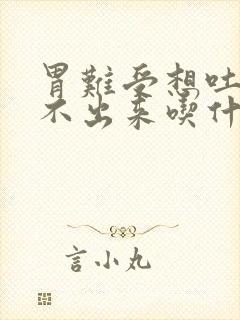 胃難受想吐
不出来喫什
言小丸